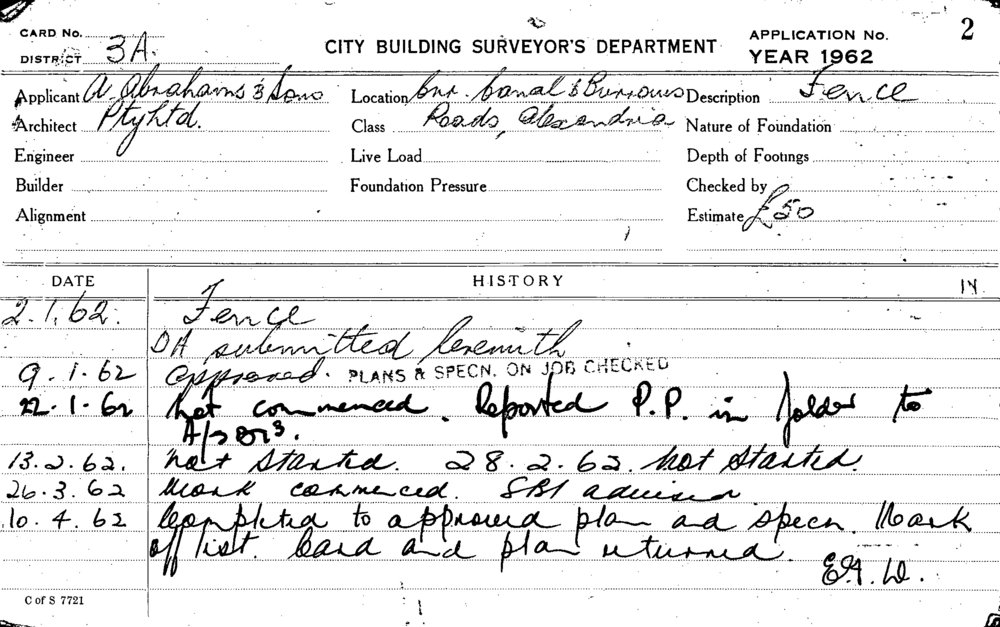 CARD No.
CITY BUILDING SURVEYOR'S DEPARTMENT
APPLICATION No. 2
DISTRICT 3A.
YEAR 1962
Applicant A. Abrahams & Sons Location Cnr. Canal & Burrows Description Fence
Architect Pty Ltd. Class Roads, Alexandria Nature of Foundation
Engineer Live Load Depth of Footings
Builder Foundation Pressure Checked by
Alignment Estimate £50
DATE HISTORY
2.1.62. Fence
DA submitted herewith
9.1.62 Approved. PLANS & SPECN. ON JOB CHECKED
22.1.62 Not commenced. Reported P.P. in folder to
13.2.62. Not started. 28.2.62. Not started.
26.3.62 Work commenced. SBI advised
10.4.62 Completed to approved plan and specn. Mark
off list. Card and plan returned.
C of S 7721